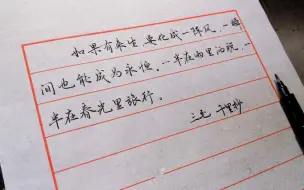 如果有来生,要化成一阵风,一瞬
间也能成为永恒。一半在雨里洒脱,一
半在春光里旅行。
三毛 千里抄